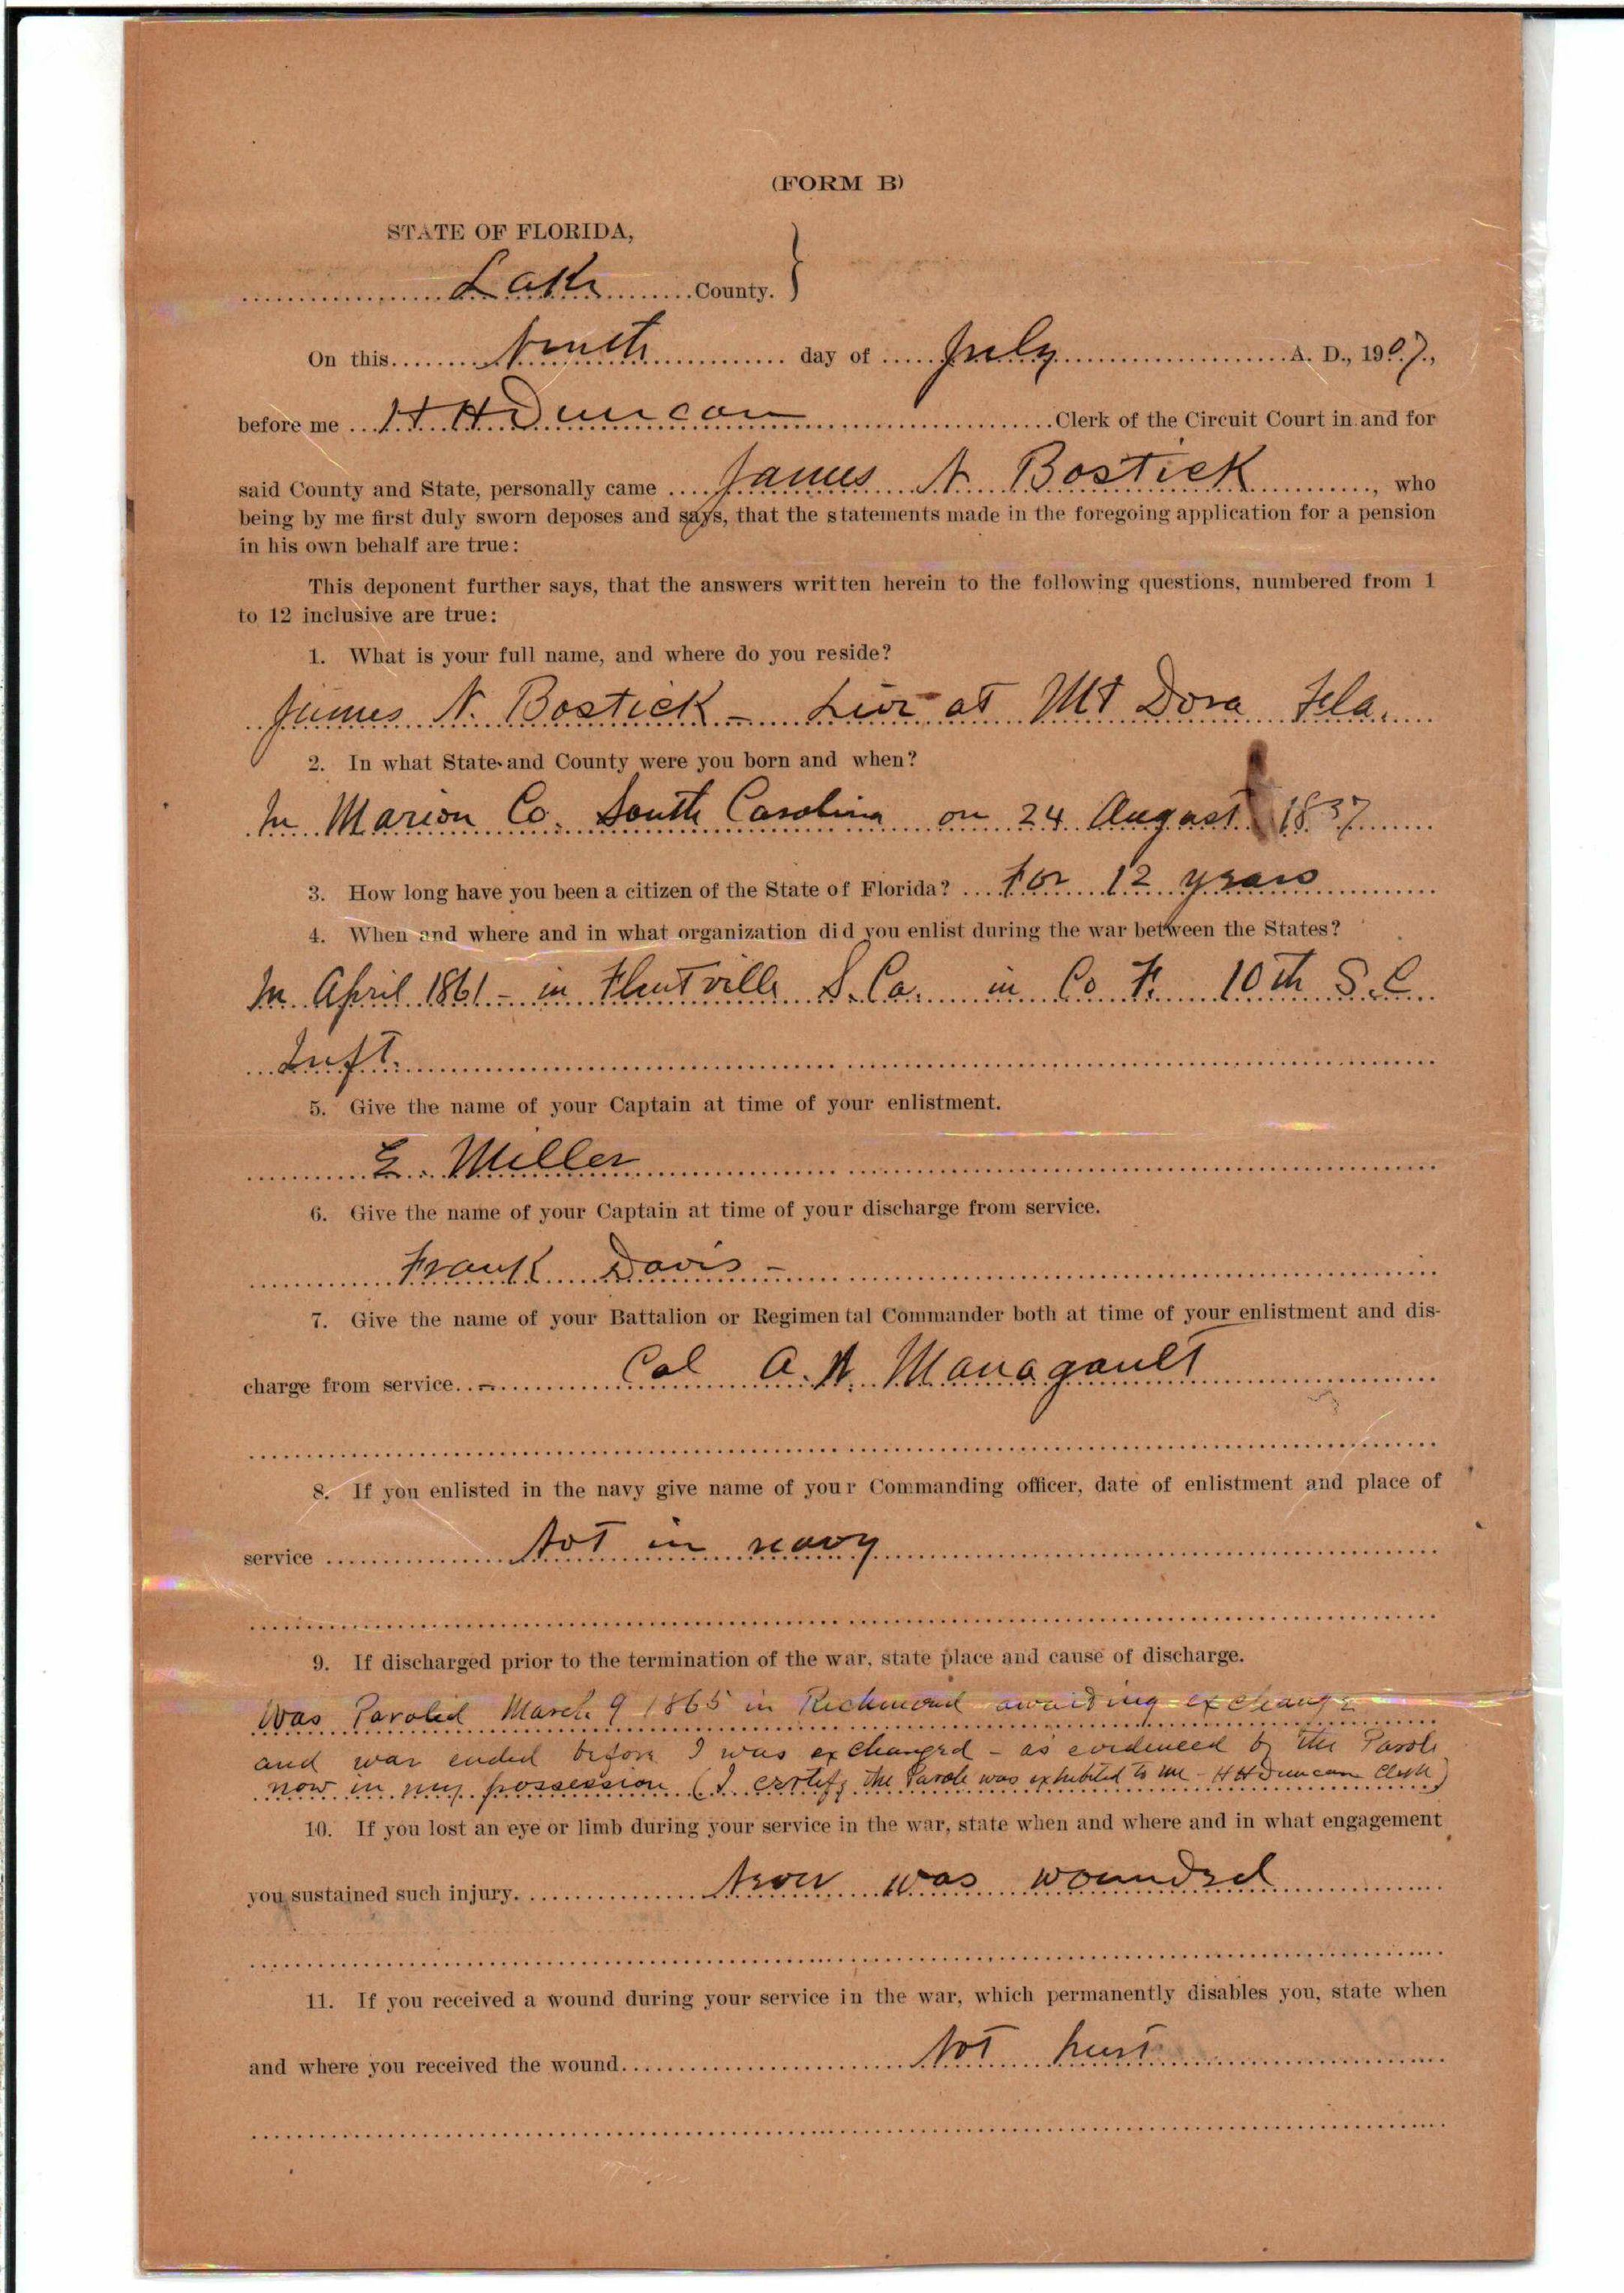 (FORM B)
STATE OF FLORIDA,
Lake County. }
On this Ninth day of July A. D., 1907,
before me H H Duncan Clerk of the Circuit Court in and for
said County and State, personally came James N. Bostick, who
being by me first duly sworn deposes and says, that the statements made in the foregoing application for a pension
in his own behalf are true:
This deponent further says, that the answers written herein to the following questions, numbered from 1
to 12 inclusive are true:
1. What is your full name, and where do you reside?
James N. Bostick - Live at Mt Dora Fla.
2. In what State and County were you born and when?
In Marion Co. South Carolina on 24 August 1837
3. How long have you been a citizen of the State of Florida? For 12 years
4. When and where and in what organization did you enlist during the war between the States?
In April 1861 - in S. Ca. in Co F. 10th S.C.
Inft.
5. Give the name of your Captain at time of your enlistment.
E. Miller
6. Give the name of your Captain at time of your discharge from service.
Frank Davis -
7. Give the name of your Battalion or Regimental Commander both at time of your enlistment and dis-
charge from service. - Col A. N. Managault
8. If you enlisted in the navy give name of your Commanding officer, date of enlistment and place of
service Not in navy
9. If discharged prior to the termination of the war, state place and cause of discharge.
Was Paroled March 9 1865 in Richmond awaiting exchange
and war ended before I was exchanged - as evidenced by the Parole
now in my possession (I certify the Parole was exhibited to me - H H Duncan Clerk)
10. If you lost an eye or limb during your service in the war, state when and where and in what engagement
you sustained such injury. Never was wounded
11. If you received a wound during your service in the war, which permanently disables you, state when
and where you received the wound. Not hurt